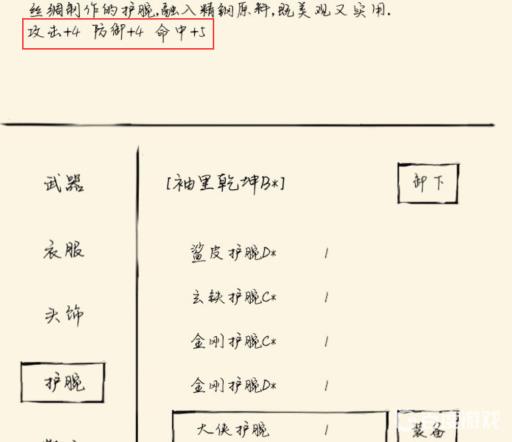 丝绸制作的护腕,融入精钢原料,既美观又实用.
攻击+4 防御+4 命中+5
武器 [袖里乾坤B*] 卸下
衣服 鲨皮护腕D* 1
玄铁护腕C* 1
头饰
金刚护腕C* 1
护腕 金刚护腕D* 1
大侠护腕 1 装备